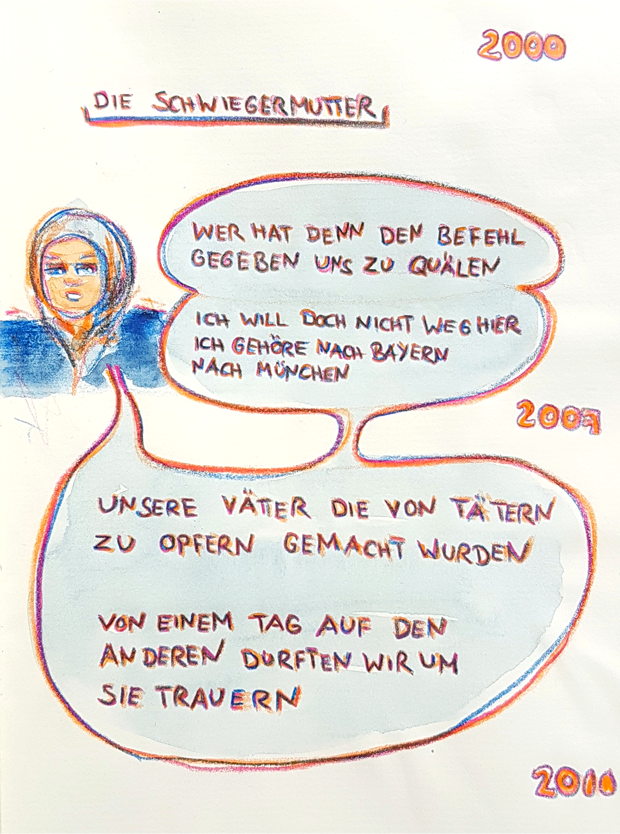 2000
DIE SCHWIEGERMUTTER
WER HAT DENN DEN BEFEHL
GEGEBEN UNS ZU QUÄLEN
ICH WILL DOCH NICHT WEG HIER
ICH GEHÖRE NACH BAYERN
NACH MÜNCHEN
2007
UNSERE VÄTER DIE VON TÄTERN
ZU OPFERN GEMACHT WURDEN
VON EINEM TAG AUF DEN
ANDEREN DURFTEN WIR UM
SIE TRAUERN
2011